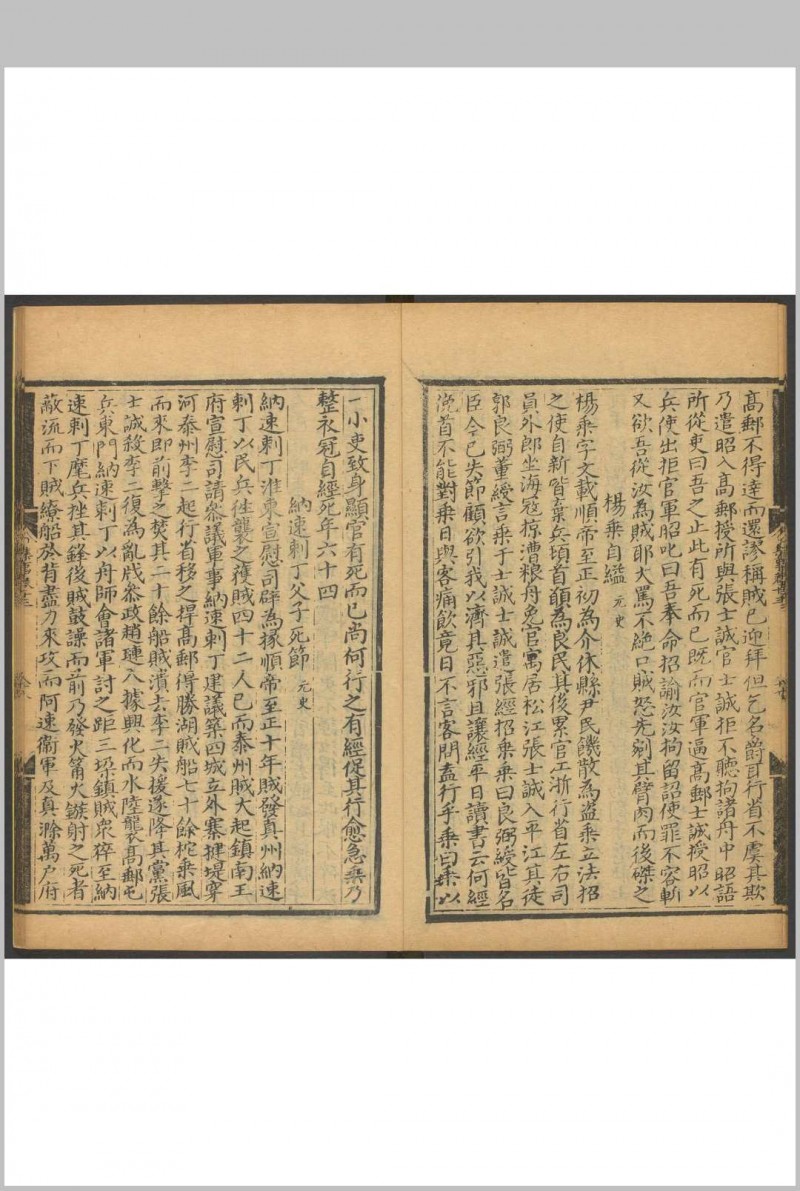 高郵不得達而還謬稱賊已迎拜但乞名爵耳行省不虞其欺
乃遣昭入高郵授所與張士誠官士誠拒不聽拘諸舟中昭語
所從吏曰吾之止此有死而已既而官軍逼高郵士誠授昭以
兵使出拒官軍昭叱曰吾奉命招諭汝汝拘留詔使罪不容斬
又欲吾從汝為賊耶大罵不絕口賊怒先剜其臂肉而後磔之
楊乘自縊 元史
楊乘字文載順帝至正初為介休縣尹民饑散為盜乘立法招
之使自新皆棄兵頃首願為良民其後累官江浙行省左右司
員外郎坐海寇掠漕粮舟免官寓居松江張士誠入平江其徒
郭良弼董綬言乘于士誠士誠遣張經招乘乘曰良弼綬皆名
臣今已失節顧欲引我以濟其惡邪且讓經平日讀書云何經
俛首不能對乘日與客痛飲竟日不言客問盍行乎乘曰乘以
一小吏致身顯官有死而已尚何行之有經促其行愈急乘乃
整衣冠自經死年六十四
納速剌丁父子死節 元史
納速剌丁淮東宣慰司辟為掾順帝至正十年賊發真州納速
剌丁以民兵往襲之獲賊四十二人已而泰州賊大起鎮南王
府宣慰司請叅議軍事納速剌丁建議築四城立外寨揵堤穿
河泰州李二起行省移之捍高郵得勝湖賊船七十餘柁乘風
而來即前擊之焚其二十餘船賊潰去李二失援遂降其黨張
士誠殺李二復為亂戕叅政趙璉入據興化而水陸襲高郵屯
兵東門納速剌丁以舟師會諸軍討之距三垜鎮賊衆猝至納
速剌丁麾兵挫其鋒後賊鼓譟而前乃發火筩火鏃射之死者
蔽流而下賊繚船於背盡力來攻而阿速衞軍及真滁萬户府